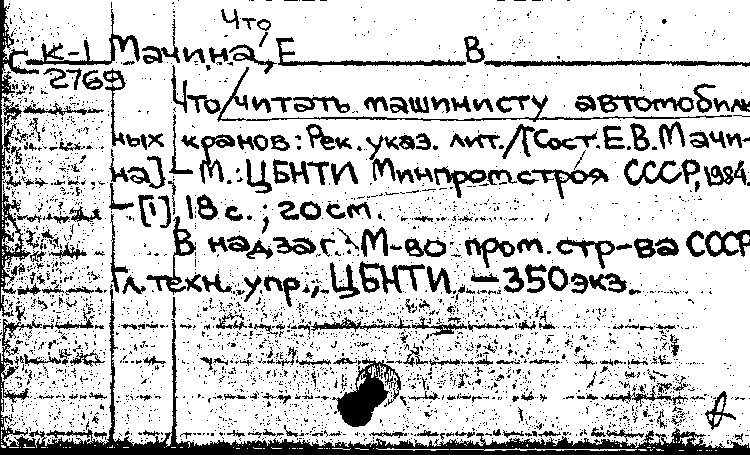 Что
С К-1 Мачина, Е В
2769
Что/читать машинисту автомобиль
ных кранов: Рек. указ. лит./[Сост. Е.В. Мачи-
на]. — М.: ЦБНТИ Минпромстроя СССР, 1984.
— [1], 18 с.; 20 см.
В надзаг.: М-во пром. стр-ва СССР
Гл. техн. упр., ЦБНТИ. — 350 экз.